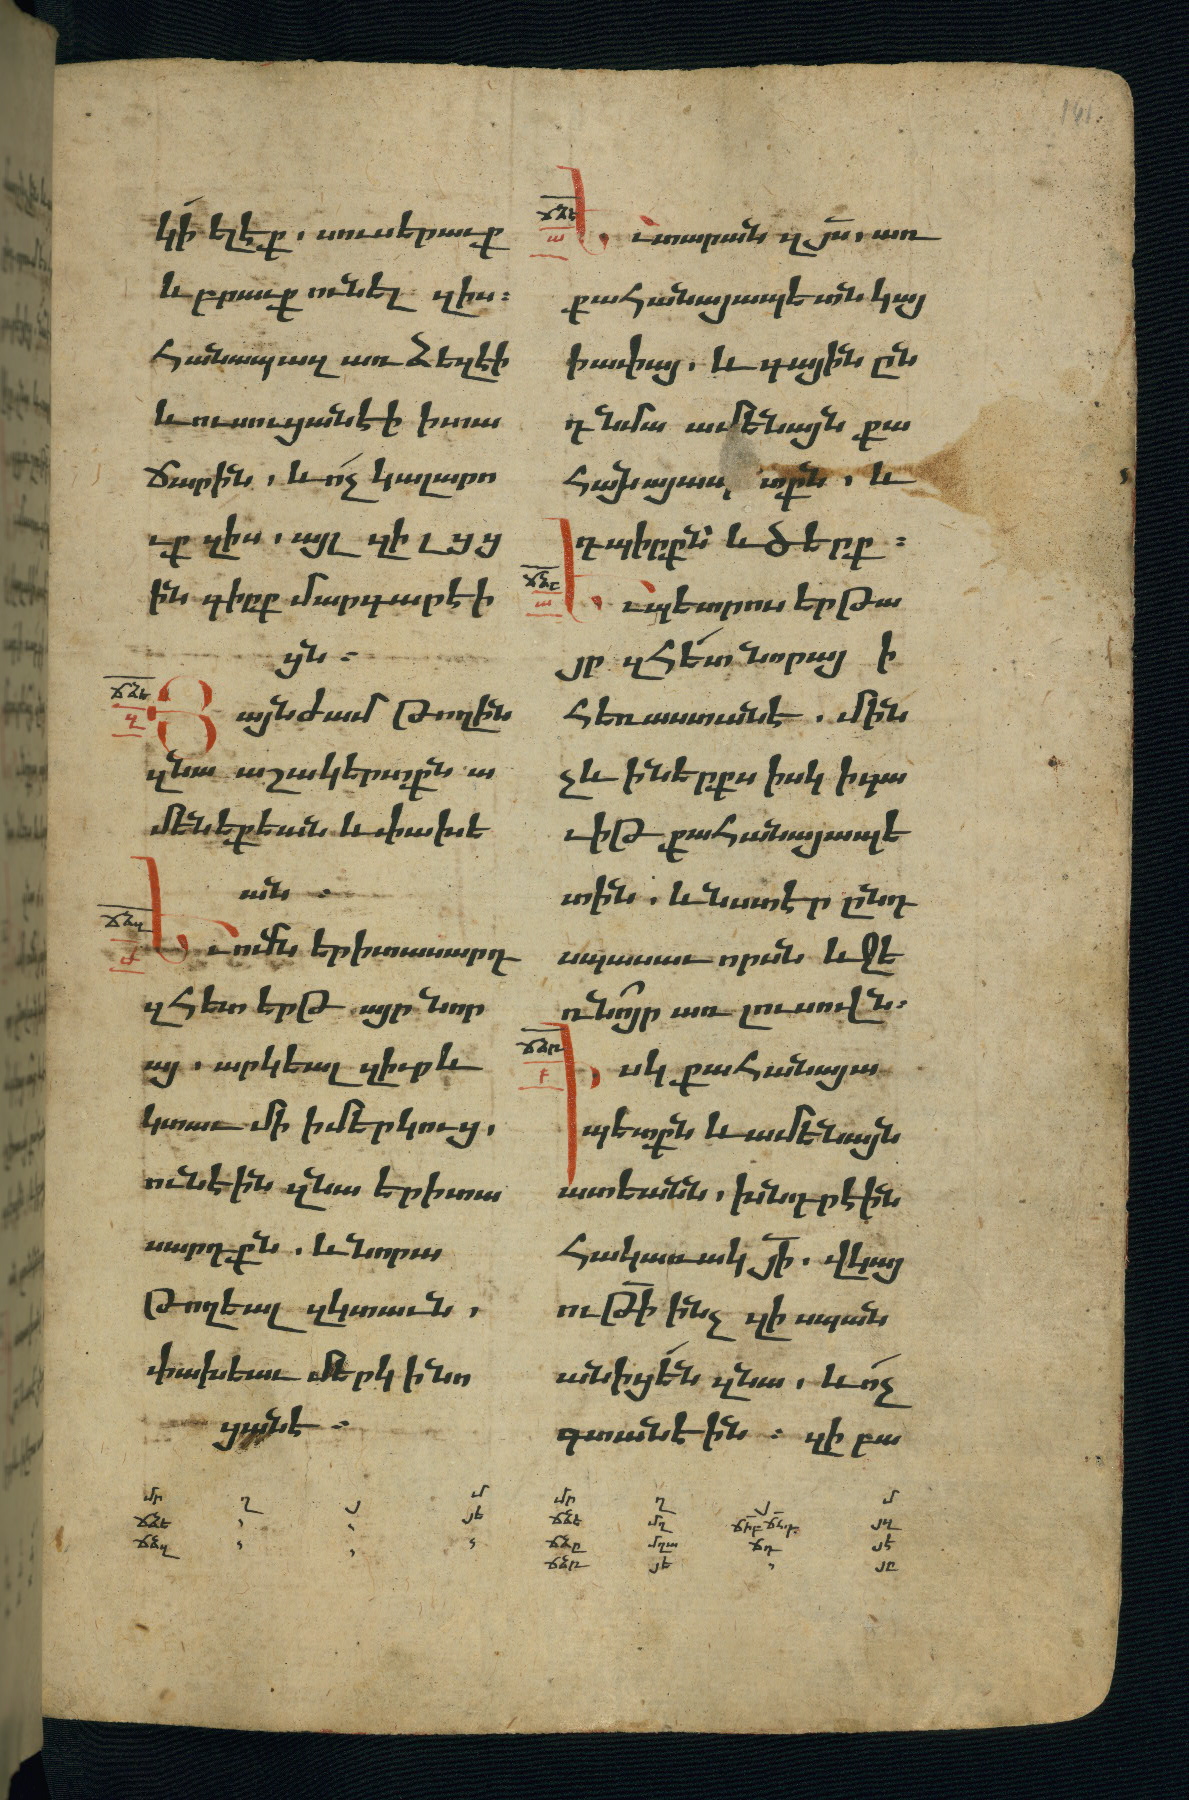 կի ելէք, սուսերաւք
և բրաւք ունել զիս։
Հանապազ առ ձեզ էի
և ուսուցանէի ի տա
ճարին, և ոչ կալարո
ւք զիս, այլ զի լցց
ին գիրք մարգարէի
ցն։
ՃՁԵ
Զ
Յայնժամ թողին
զնա աշակերտքն ա
մենեքեան և փախե
ան։
ՃՁԶ
Ժ
Եւ ոմն երիտասարդ
զհետ երթ այր նոր
այ, արկեալ զիւրև
կտաւ մի ի մերկուց,
ունէին զնա երիտա
սարդքն, և նորա
թողեալ զկտաւն,
փախեաւ մերկ ի նո
ցանէ։
ՃՁԷ
Ա
Եւ տարան զյս, առ
քահանայապետն կայ
իափայ, և գային ըն
դ նմա ամենայն քա
տքն, և
դպիրքն և ծերք։
ՃՁԸ
Ա
Եւ պետրոս երթա
յր զհետ նորայ ի
հեռաստանէ, մին
չև ի ներքս իսկ ի գա
ւիթ քահանայապե
տին, և նստէր ընդ
սպասաւորսն և ջե
ռնոյր առ լուսովն.
ՃՁԹ
Բ
Իսկ քահանայա
պետքն և ամենայն
ատեանն, խնդրէին
հակառակ յի, վկայ
ութի ինչ զի սպան
անիցեն զնա, և ոչ
գտանէին։ զի բա
մր ղ յ մ
ՃՁԵ , , յե
ՃՁԶ , , ,
մր ղ յ մ